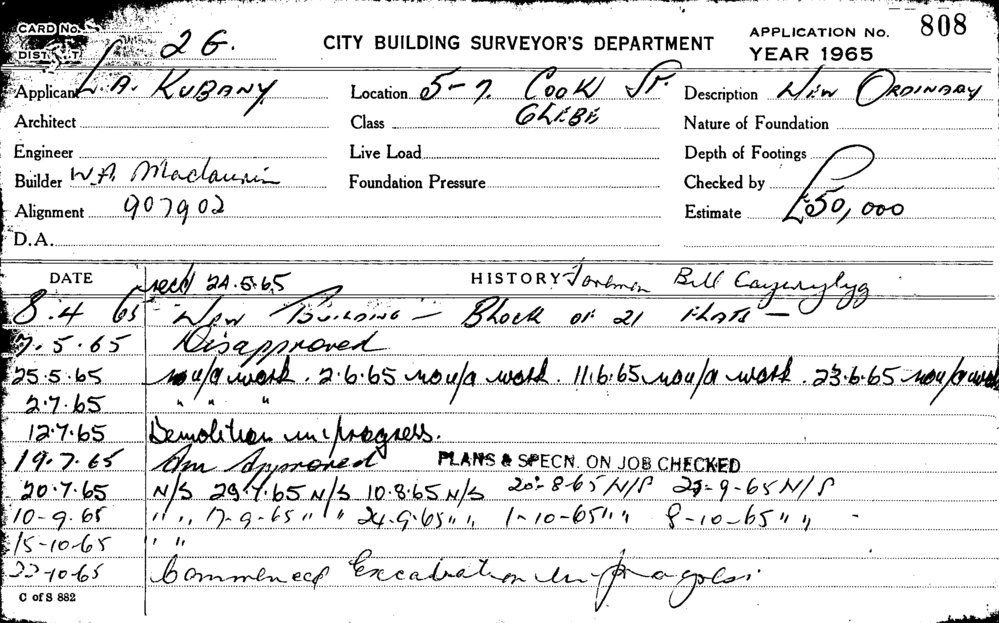 CARD No. 2 G. CITY BUILDING SURVEYOR'S DEPARTMENT APPLICATION No. 808
DIST T YEAR 1965
Applicant L. A. KUBANY Location 5-7. COOK ST. Description NEW ORDINARY
Architect Class GLEBE Nature of Foundation
Engineer Live Load Depth of Footings
Builder W.A. Maclaurin Foundation Pressure Checked by
Alignment 907902 Estimate £50,000
D.A.
DATE recd 24.5.65 HISTORY Foreman Bill
8.4 65 New BUILDING — Block OF 21 FLATS —
7.5.65 Disapproved
25.5.65 no u/a work. 2.6.65 no u/a work. 11.6.65 no u/a work. 23.6.65 no u/a work
2.7.65 " " "
12.7.65 Demolition in progress.
19.7.65 Am Approved PLANS & SPECN. ON JOB CHECKED
20.7.65 N/S 29.7.65 N/S 10.8.65 N/S 20-8-65 N/S -9-65 N/S
10-9.65 " " 17-9-65 " " 24-9-65 " " 1-10-65 " " 8-10-65 " " -
15-10-65 " "
22-10-65 Commenced Excavation in progress
C of S 882